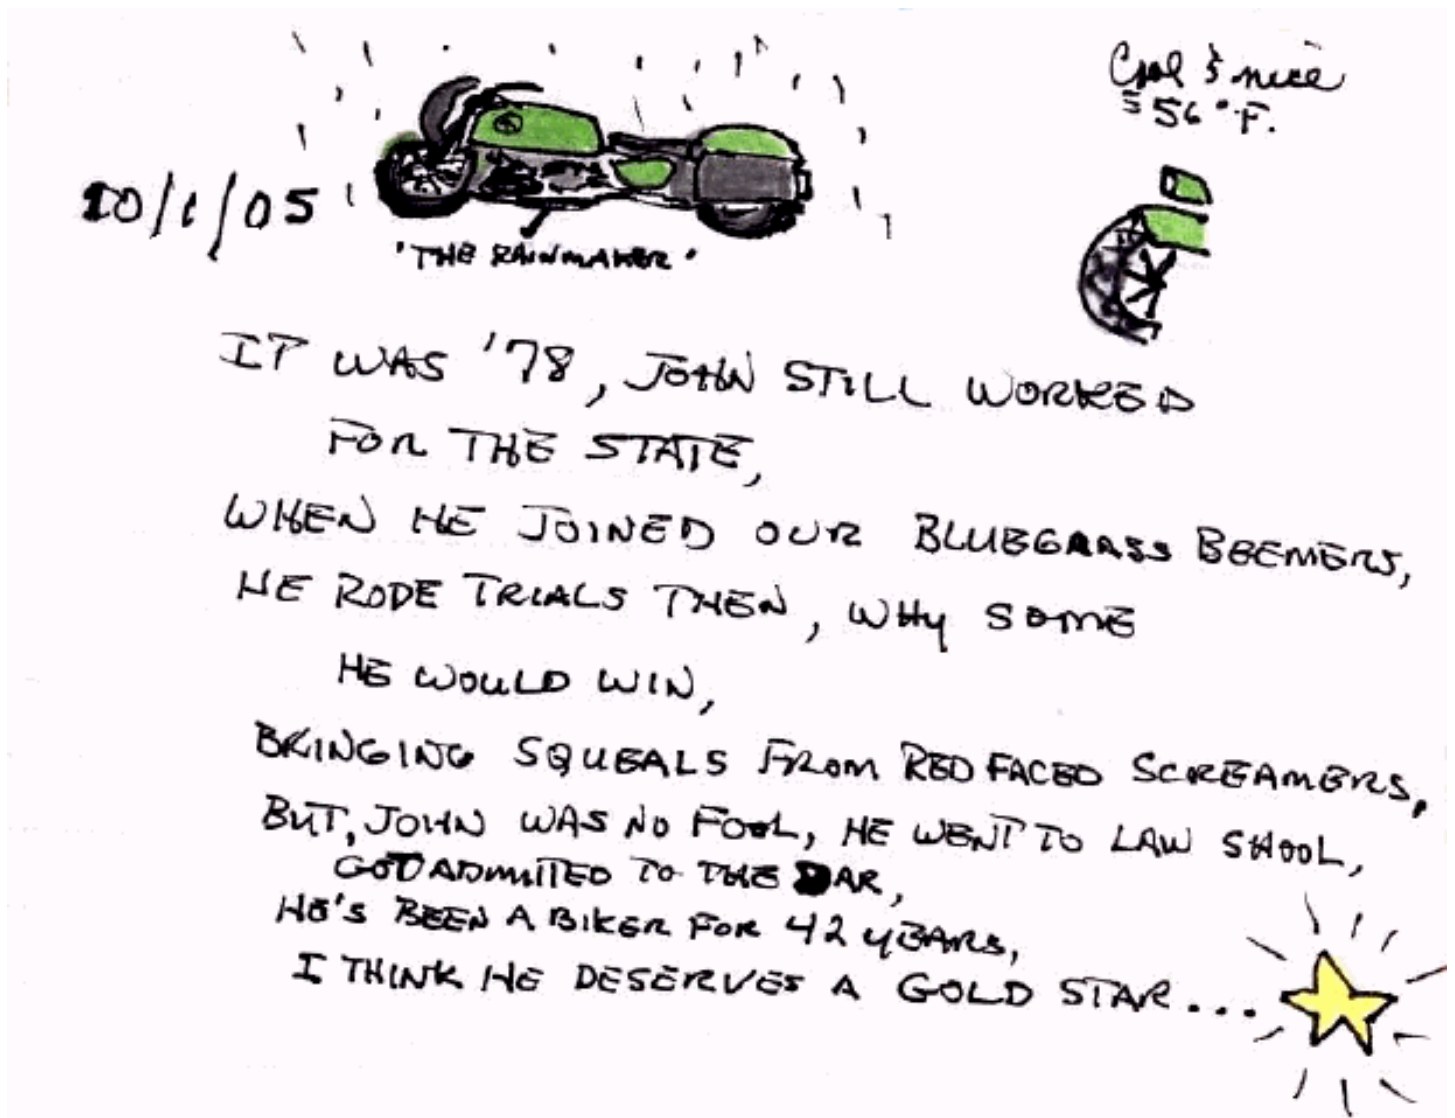 Cool & nice
≈ 56° F.
10/1/05
"THE RAINMAKER"
IT WAS '78, JOHN STILL WORKED
FOR THE STATE,
WHEN HE JOINED OUR BLUEGRASS BEEMERS,
HE RODE TRIALS THEN, WHY SOME
HE WOULD WIN,
BRINGING SQUEALS FROM RED FACED SCREAMERS,
BUT, JOHN WAS NO FOOL, HE WENT TO LAW SHOOL,
GOT ADMITTED TO THE BAR,
HE'S BEEN A BIKER FOR 42 YEARS,
I THINK HE DESERVES A GOLD STAR...